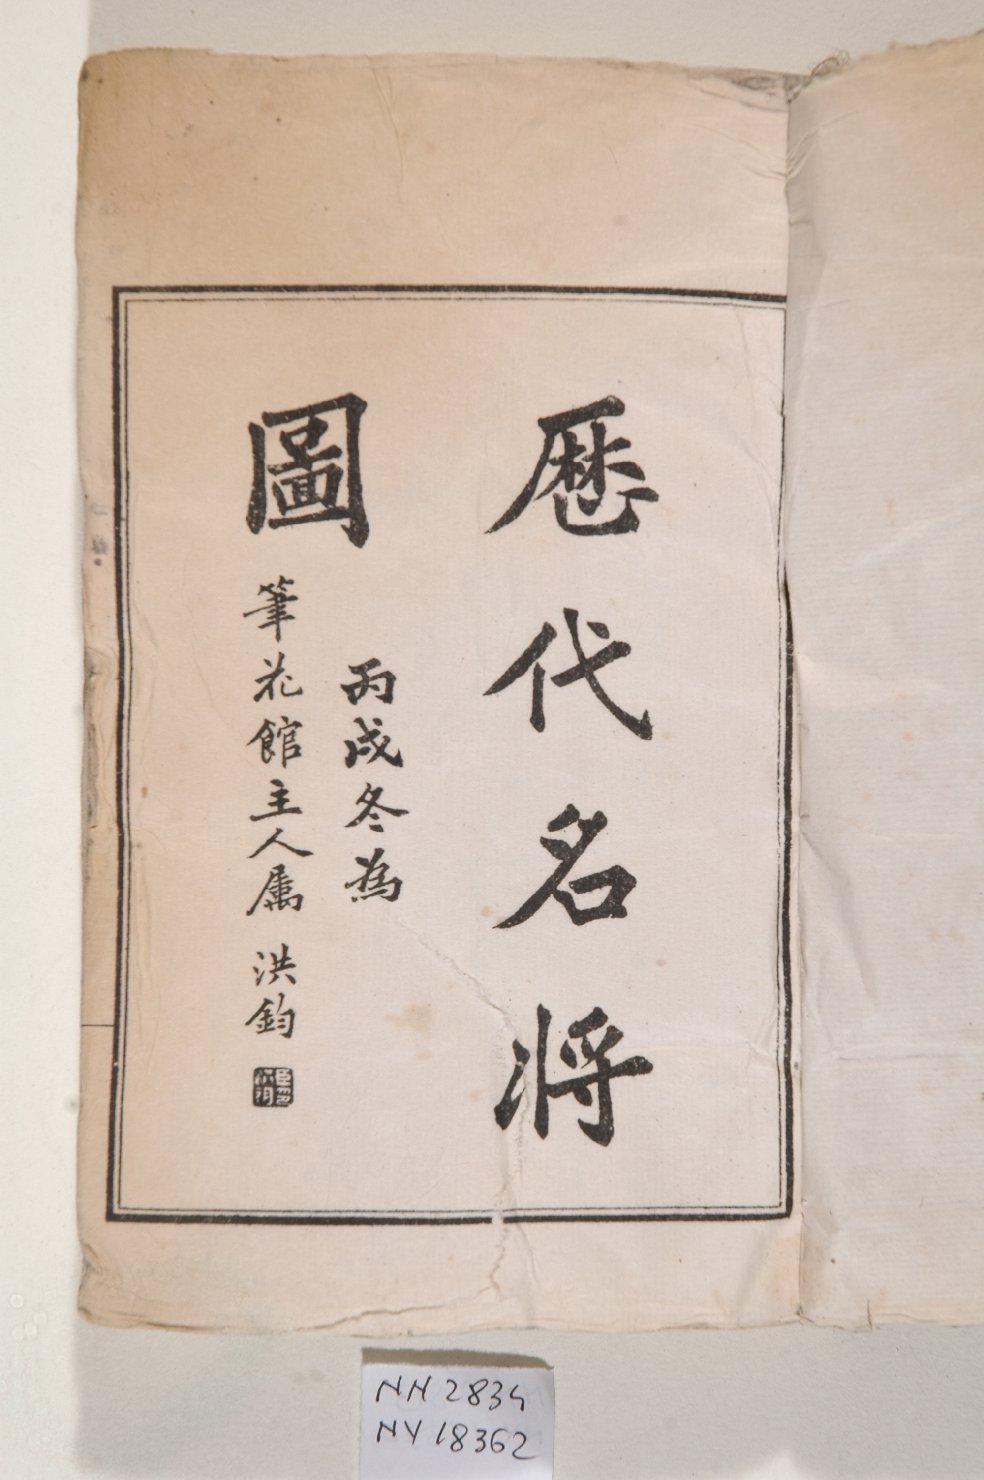 歷代名将
圖
丙戌冬為
筆花館主人属 洪鈞
NN 2834
NV 18362